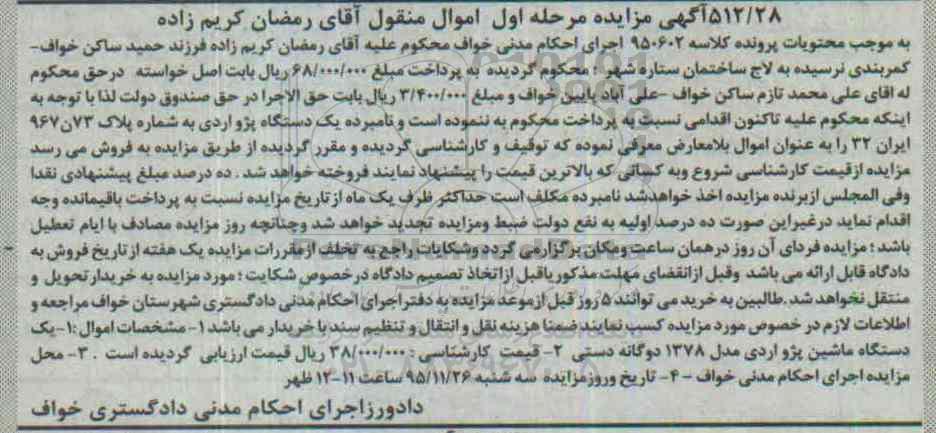 ۵۱۲/۲۸آگهی مزایده مرحله اول اموال منقول آقای رمضان کریم زاده
به موجب محتویات پرونده کلاسه ۹۵۰۶۰۲ اجرای احکام مدنی خواف محکوم علیه آقای رمضان کریم زاده فرزند حمید ساکن خواف-
کمربندی نرسیده به لاج ساختمان ستاره شهر ؛ محکوم گردیده به پرداخت مبلغ ۶۸/۰۰۰/۰۰۰ ریال بابت اصل خواسته درحق محکوم
له اقای علی محمد تازم ساکن خواف -علی آباد پایین خواف و مبلغ ۳/۴۰۰/۰۰۰ ریال بابت حق الاجرا در حق صندوق دولت لذا با توجه به
اینکه محکوم علیه تاکنون اقدامی نسبت به پرداخت محکوم به ننموده است و نامبرده یک دستگاه پژو اردی به شماره پلاک ۷۳ن۹۶۷
ایران ۳۲ را به عنوان اموال بلامعارض معرفی نموده که توقیف و کارشناسی گردیده و مقرر گردیده از طریق مزایده به فروش می رسد
مزایده ازقیمت کارشناسی شروع وبه کسانی که بالاترین قیمت را پیشنهاد نمایند فروخته خواهد شد . ده درصد مبلغ پیشنهادی نقدا
وفی المجلس ازبرنده مزایده اخذ خواهدشد نامبرده مکلف است حداکثر ظرف یک ماه از تاریخ مزایده نسبت به پرداخت باقیمانده وجه
اقدام نماید درغیراین صورت ده درصد اولیه به نفع دولت ضبط ومزایده تجدید خواهد شد وچنانچه روز مزایده مصادف با ایام تعطیل
باشد؛ مزایده فردای آن روز درهمان ساعت ومکان برگزارمی گردد وشکایات راجع به تخلف ازمقررات مزایده یک هفته از تاریخ فروش به
دادگاه قابل ارائه می باشد وقبل ازانقضای مهلت مذکور یاقبل ازاتخاذ تصمیم دادگاه درخصوص شکایت ؛ مورد مزایده به خریدار تحویل و
منتقل نخواهد شد .طالبین به خرید می توانند ۵ روز قبل ازموعد مزایده به دفتر اجرای احکام مدنی دادگستری شهرستان خواف مراجعه و
اطلاعات لازم در خصوص مورد مزایده کسب نمایند ضمنا هزینه نقل و انتقال و تنظیم سند با خریدار می باشد ۱- مشخصات اموال :۱-یک
دستگاه ماشین پژو اردی مدل ۱۳۷۸ دوگانه دستی ۲- قیمت کارشناسی : ۳۸/۰۰۰/۰۰۰ ریال قیمت ارزیابی گردیده است . ۳- محل
مزایده اجرای احکام مدنی خواف - ۴- تاریخ وروزمزایده سه شنبه ۹۵/۱۱/۲۶ ساعت ۱۱-۱۲ ظهر
دادورزاجرای احکام مدنی دادگستری خواف